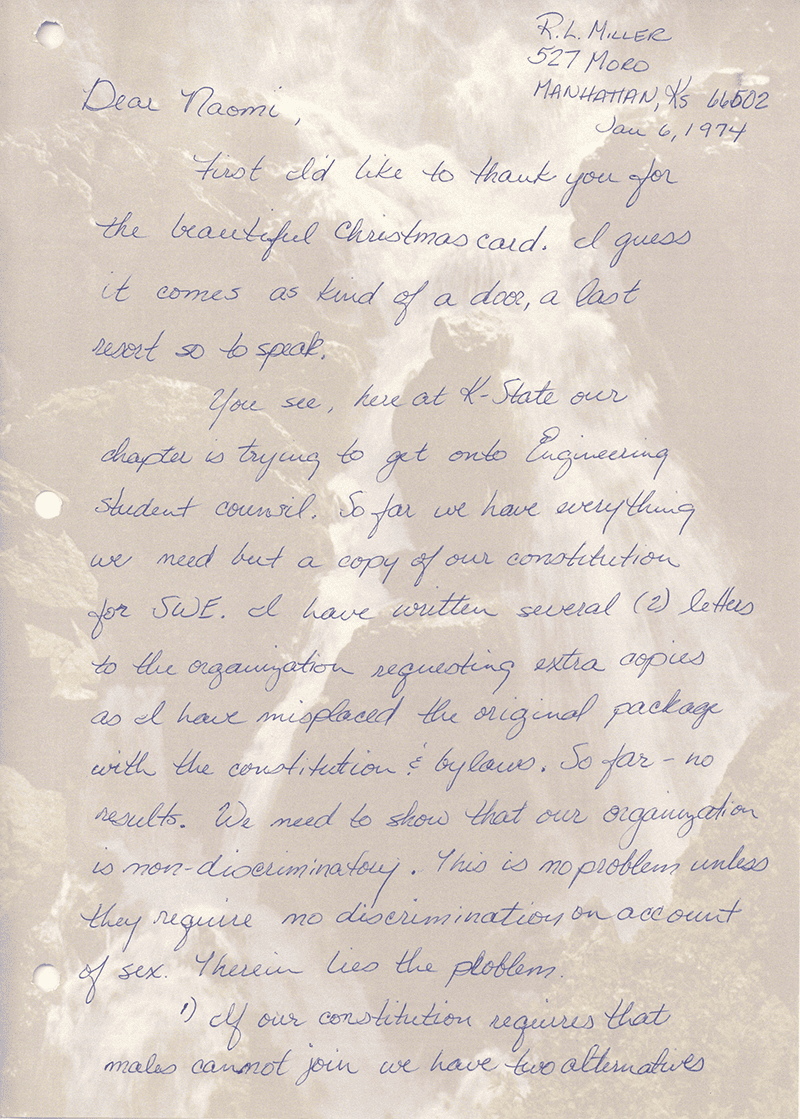 R.L. MILLER
527 MORO
MANHATTAN, Ks 66502
Jan 6, 1974
Dear Naomi,
First I'd like to thank you for
the beautiful Christmas card. I guess
it comes as kind of a door, a last
resort so to speak.
You see, here at K-State our
chapter is trying to get onto Engineering
student council. So far we have everything
we need but a copy of our constitution
for SWE. I have written several (2) letters
to the organization requesting extra copies
as I have misplaced the original package
with the constitution & bylaws. So far - no
results. We need to show that our organization
is non-discriminatory. This is no problem unless
they require no discrimination on account
of sex. Therein lies the problem.
1) If our constitution requires that
males cannot join we have two alternatives